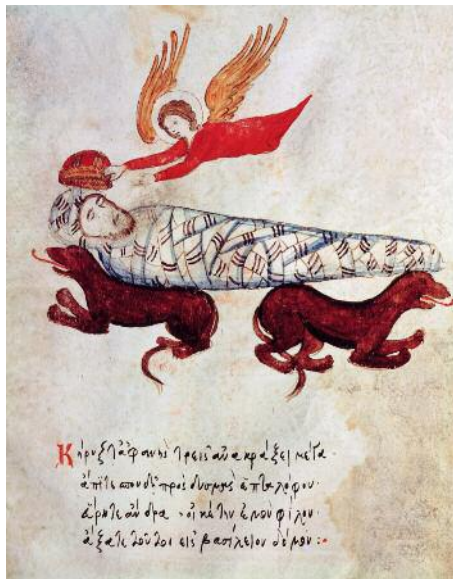 Κήρυξ τ' ἀφανὴς τρεῖς ἀνακράξει μέγα·
ἄπιτε σπουδῇ πρὸς δυσμὰς ἑπταλόφου·
εὕρητε ἄνδρα· οἰκέτην ἐμοῦ φίλον·
ἄξατε τοῦτον εἰς βασίλειον δόμον :·